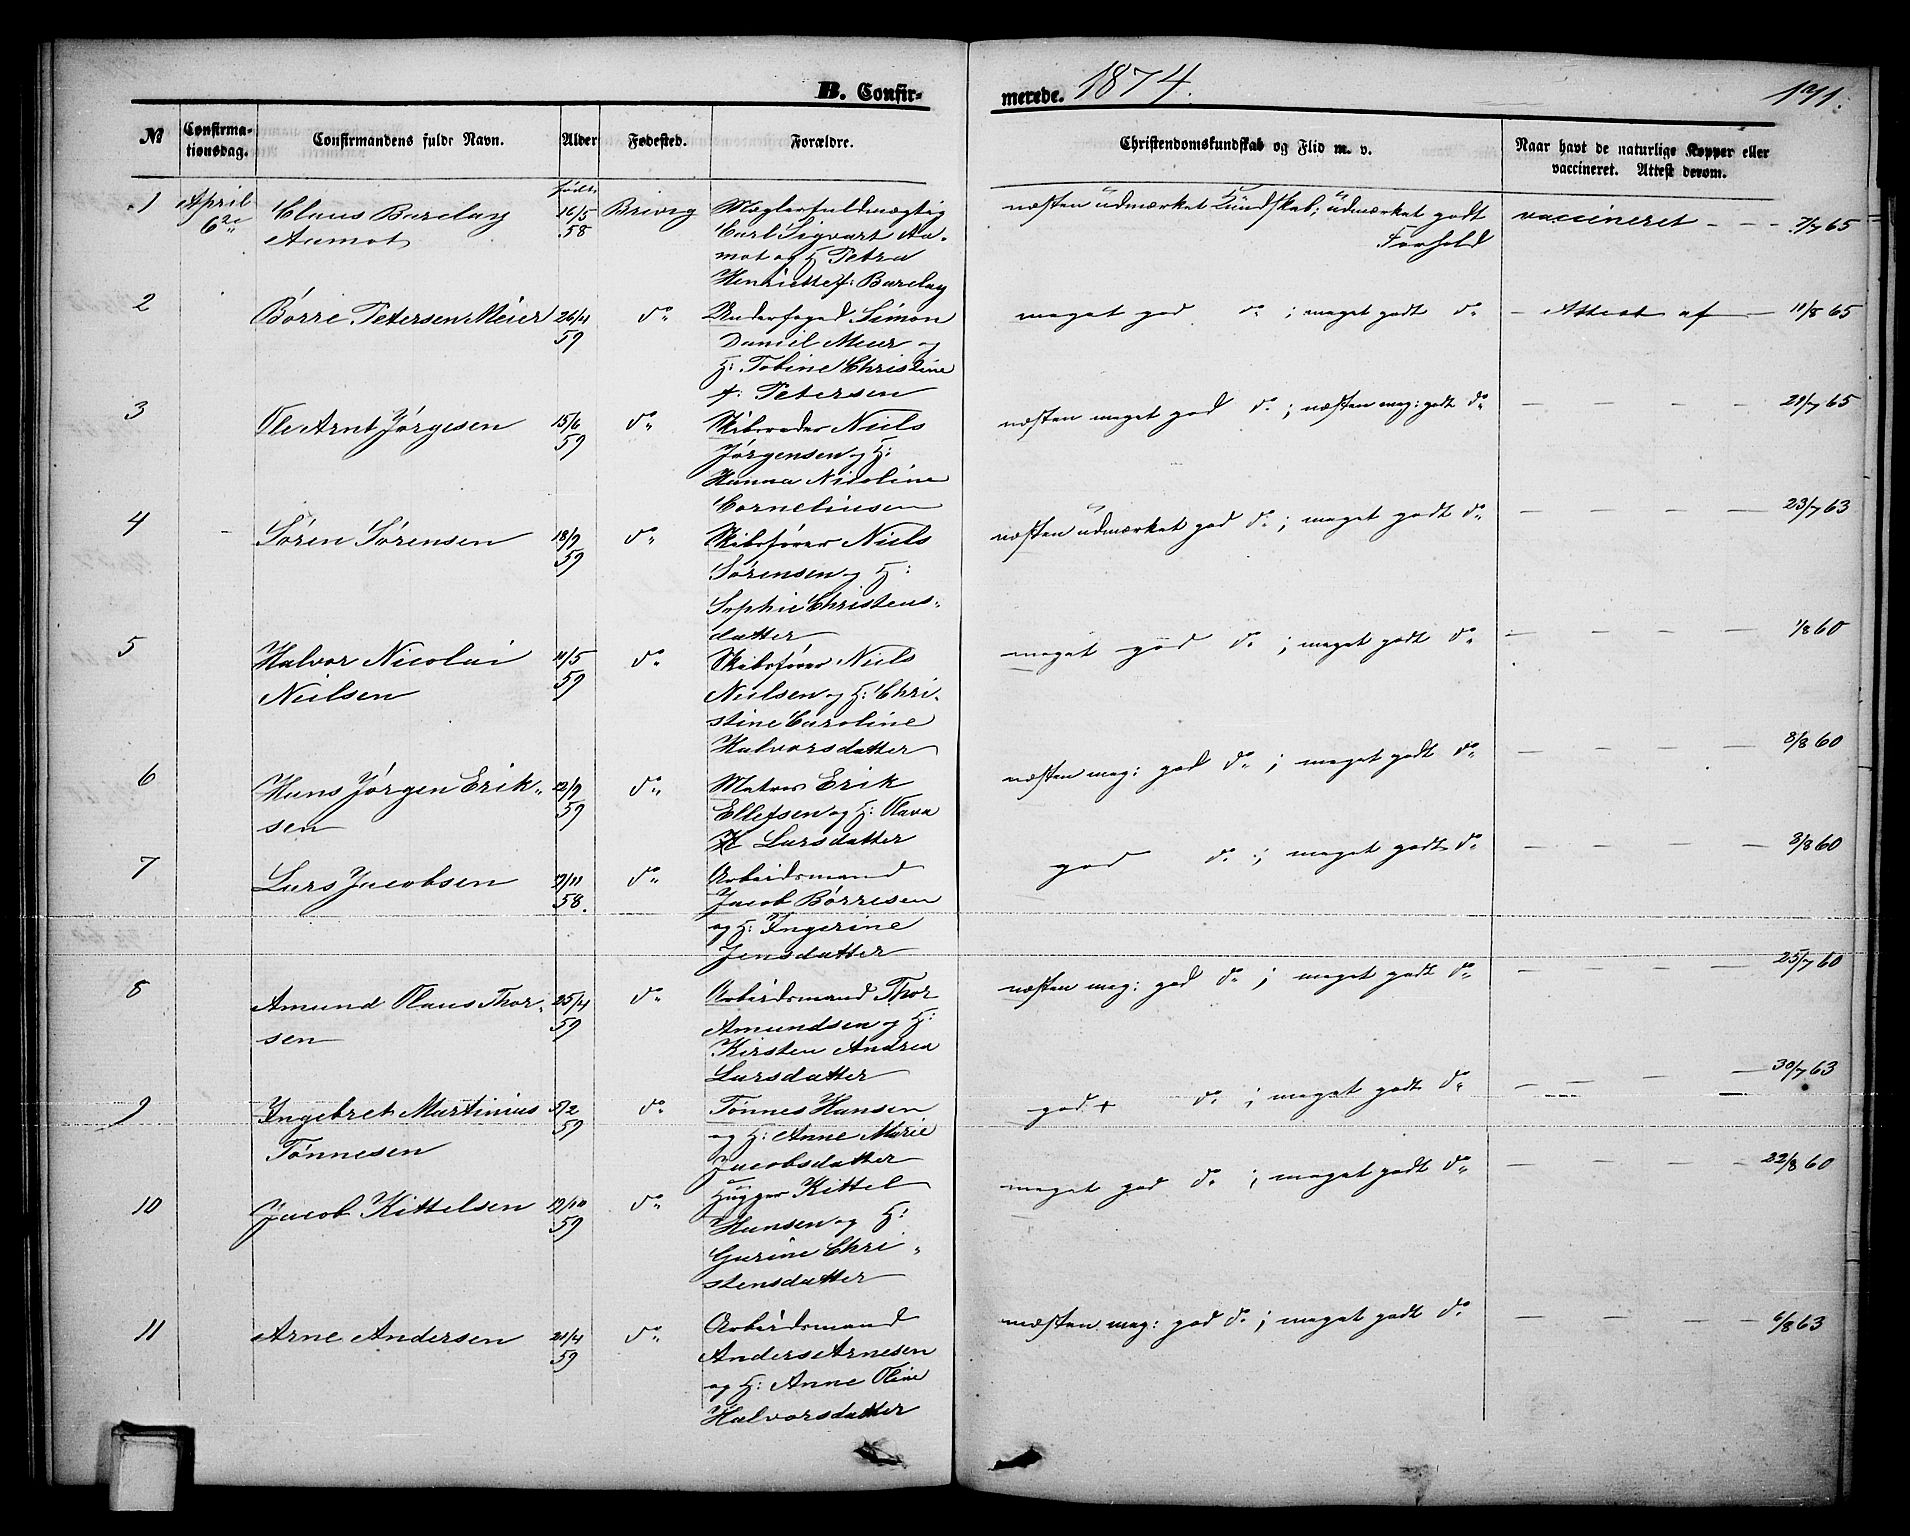 B. Confir-
merede. 1874.
171.
№
Confirma-
tionsdag.
Confirmandens fulde Navn.
Alder
Fødested.
Forældre.
Christendomskundskab og Flid m. v.
Naar havt de naturlige Kopper eller
vaccineret. Attest derom.
født
1 April 6te Claus Barclay 16/5 Brevig Mæglerfuldmægtig næsten udmærket Kundskab; udmærket godt vaccineret - - - 7/7 65
Aamot 58 Carl Sigvart Aa- Forhold
mot og H: Petra
Henriette f: Barclay
2 Børre Petersen Meier 26/4 do Underfoged Simon meget god do ; meget godt do - Attest af - 11/8 65
59 Daniel Meier og
H: Tobine Christine
f: Petersen
3 Ole Arnt Jørgesen 15/6 do Skibsreder Niels næsten meget god do ; næsten meg: godt do — — — — 21/7 65
59 Jørgensen og H:
Hanna Nicoline
Corneliusen
4 Søren Sørensen 18/9 do Skibsfører Niels næsten udmærket god do ; meget godt do — — — — 23/7 63
59 Sørensen og H:
Sophie Christens-
datter
5 Halvor Nicolai 11/5 do Skibsfører Niels meget god do ; meget godt do — — — — 1/8 60
Neilsen 59 Neilsen og H: Chri-
stine Caroline
Halvorsdatter
6 Hans Jørgen Erik- 12/9 do Matros Erik næsten meg: god do ; meget godt do — — — — 8/8 60
sen 59 Ellefsen og H: Olava
Larsdatter
7 Lars Jacobsen 12/11 do Arbeidsmand god do ; meget godt do — — — — 8/8 60
58. Jacob Børresen
og H: Ingerine
Jensdatter
8 Amund Olaus Thor- 25/4 do Arbeidsmand Thor næsten meg: god do ; meget godt do — — — — 25/7 60
sen 59 Amundsen og H:
Kirsten Andrea
Larsdatter
9 Ingebret Martinius 5/2 do Tønnes Hansen god + do ; meget godt do — — — — 30/7 63
Tønnesen 59 og H: Anne Marie
Jacobsdatter
10 Jacob Kittelsen 12/10 do Hugger Kittel meget god do ; meget godt do — — — — 22/8 60
59 Hansen og H:
Gurine Chri-
stensdatter
11 Arne Andersen 21/4 do Arbeidsmand næsten meg: god do ; meget godt do — — — — 6/8 63
59 Anders Arnesen
og H: Anne Oline
Halvorsdatter